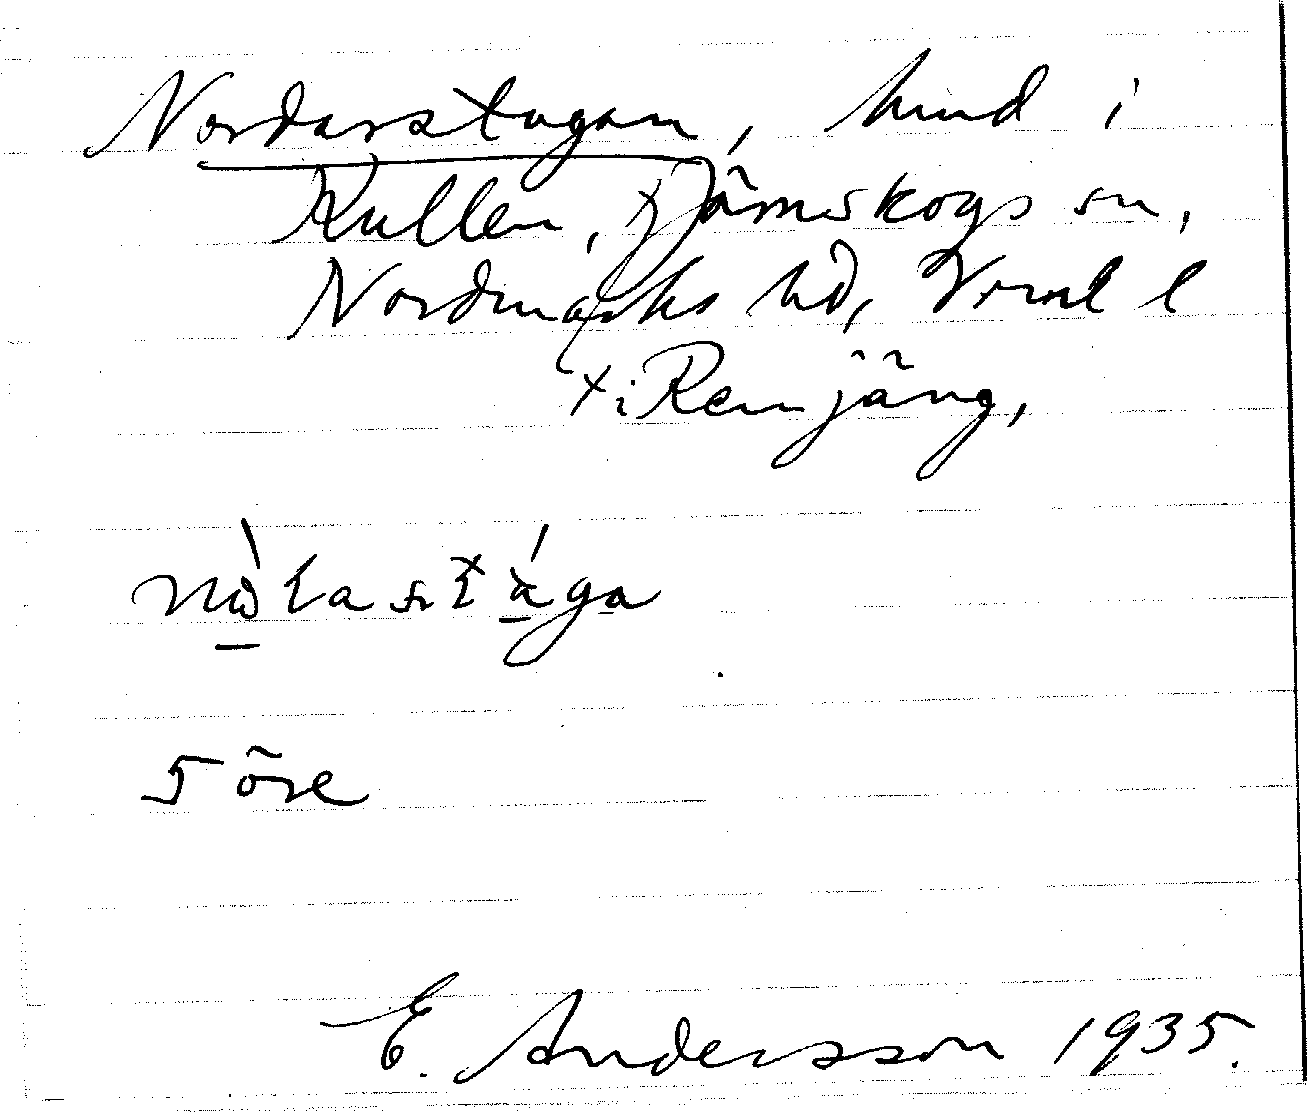 Nordarstugan, hmd i
Kullen, x Järnskogs sn,
Nordmarks hd, Vrml l
x i Remjäng,
5 öre
E. Andersson 1935.